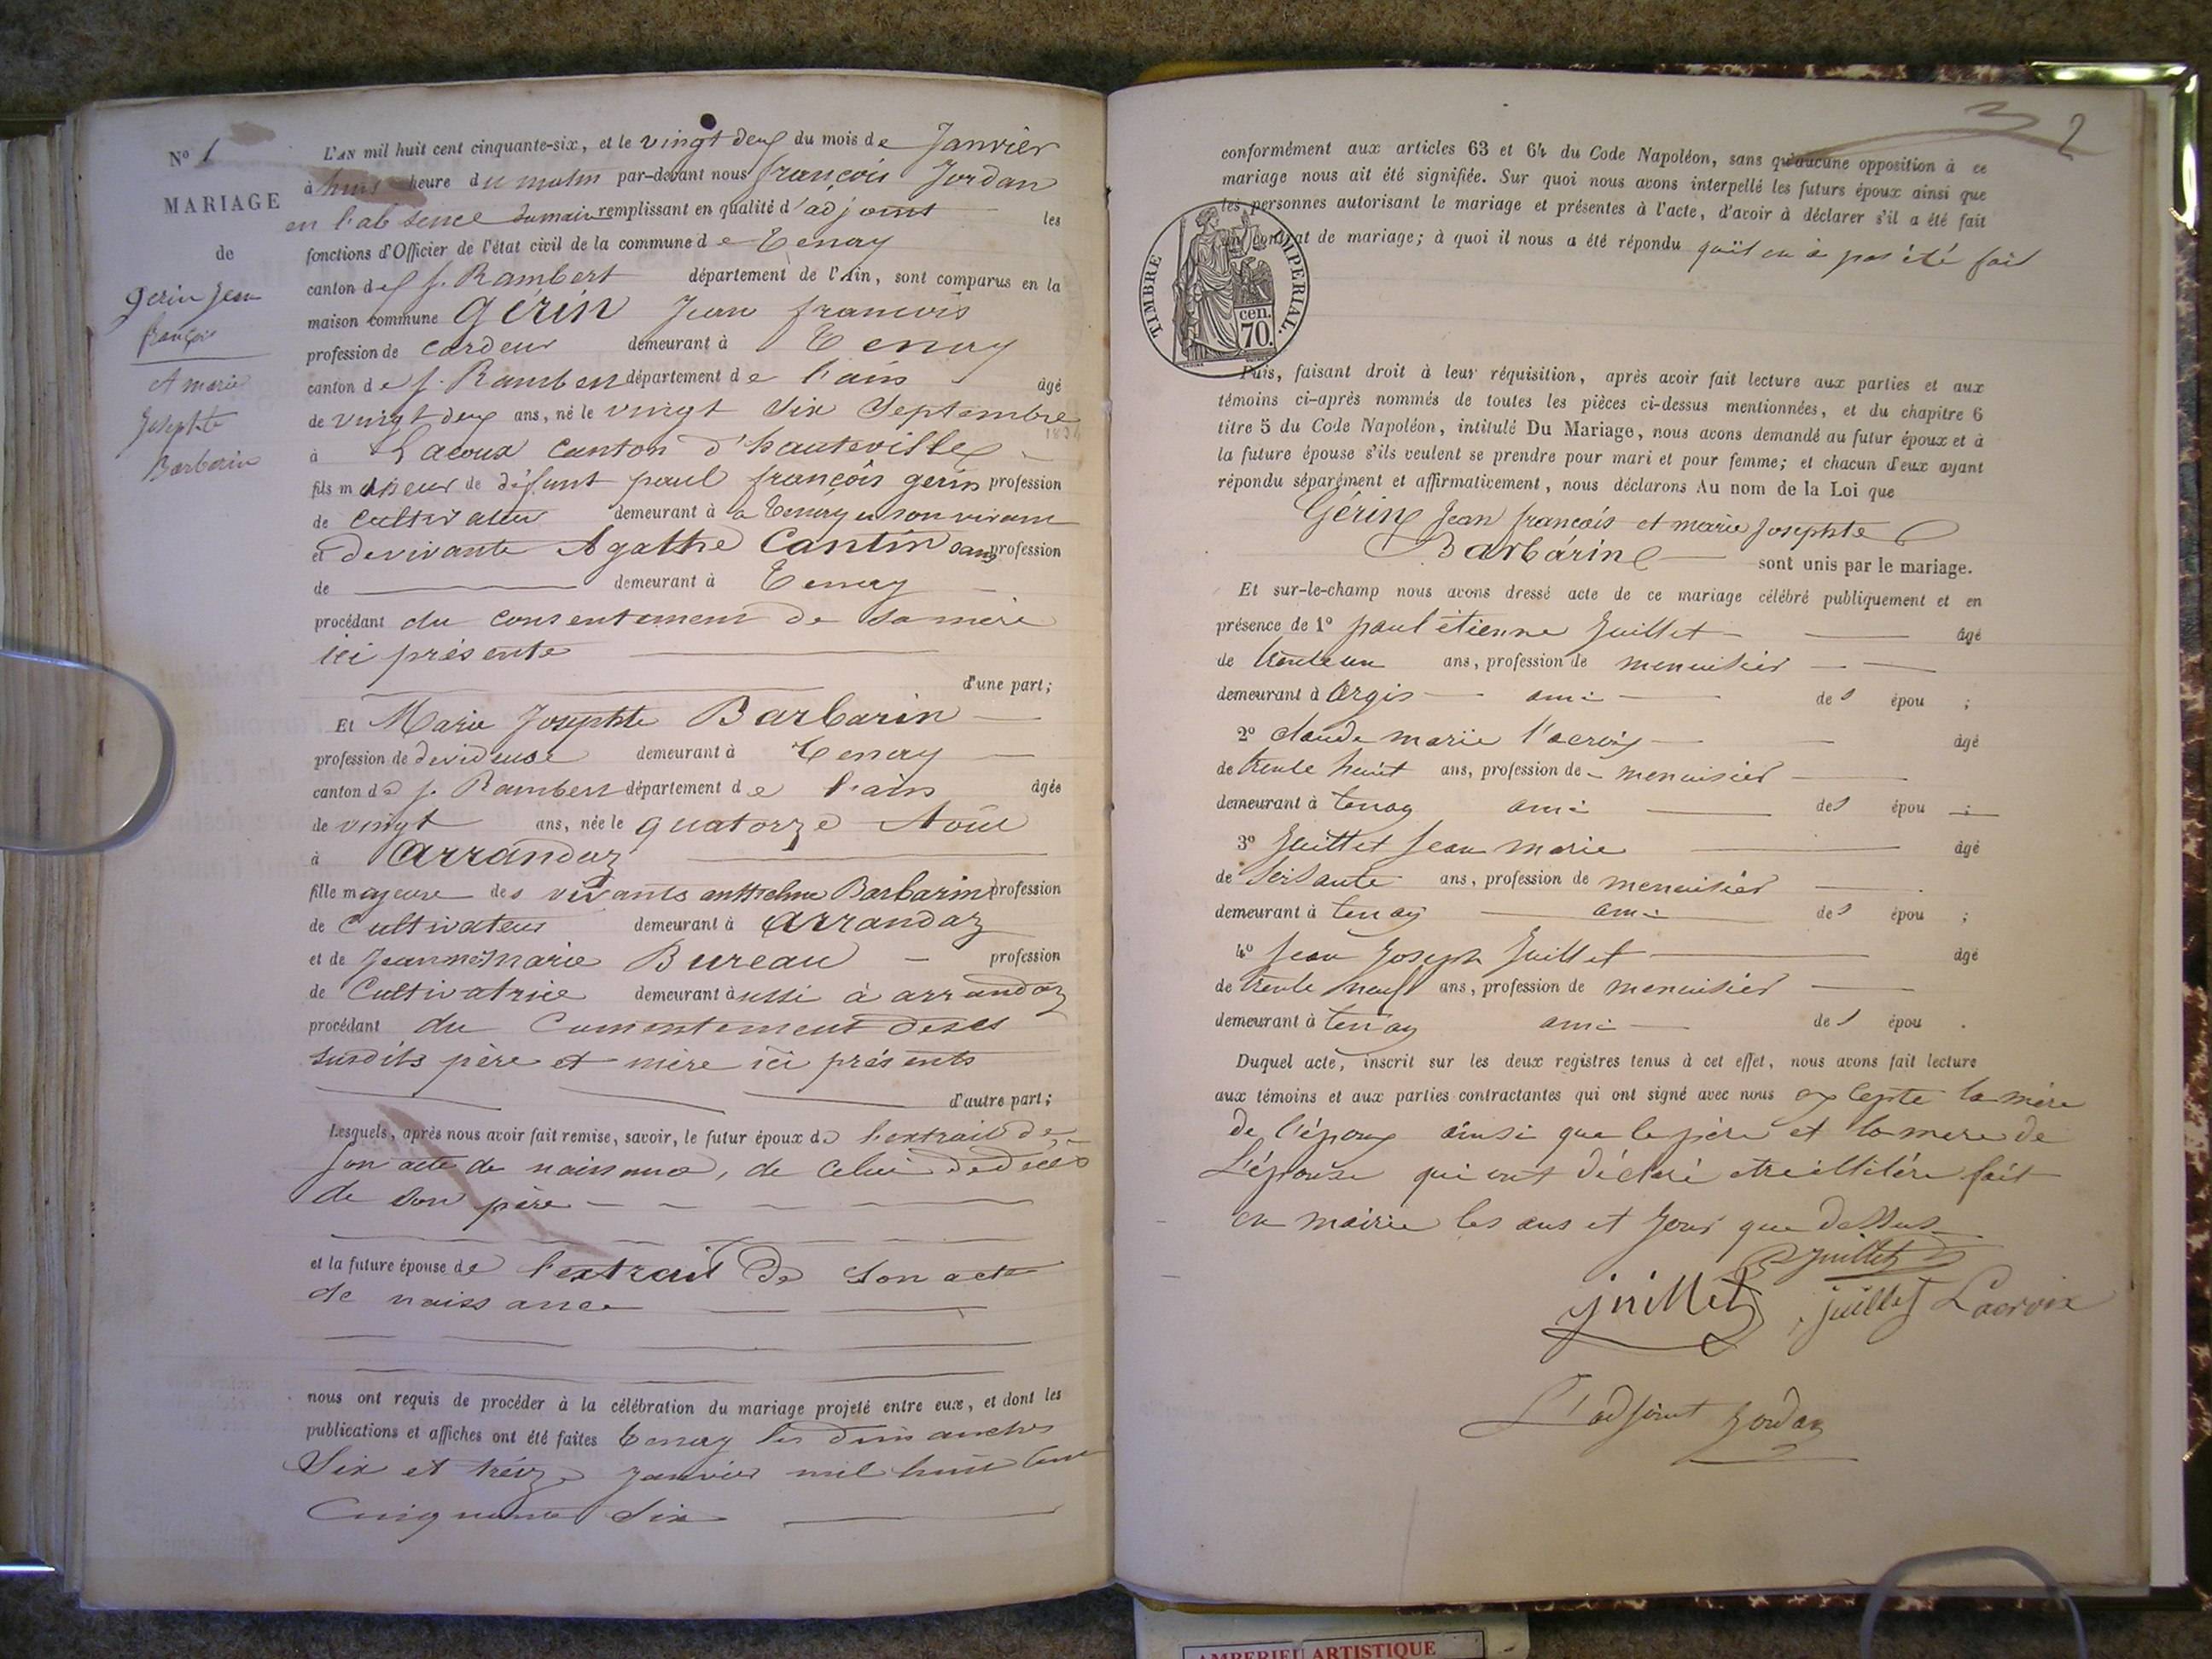 N° 1
MARIAGE
de
Gerin Jean
françois
et marie
Josephte
Barbarin
L'AN mil huit cent cinquante-six, et le vingt deux du mois de Janvier
à huit heure du matin par-devant nous françois Jordan
en l'absence du maire remplissant en qualité d'adjoint les
fonctions d'Officier de l'état civil de la commune de Tenay
canton de St. Rambert département de l'Ain, sont comparus en la
maison commune Gérin Jean francois
profession de cardeur demeurant à Tenay
canton de St. Rambert département de l'ain âgé
de vingt deux ans, né le vingt six Septembre
à Lacoux canton d'hauteville
fils mineur de défunt paul françois gerin profession
de cultivateur demeurant à a Tenay en son vivant
et de vivante Agathe Cantin sans profession
de demeurant à Tenay
procédant du consentement de sa mère
ici présente
d'une part;
Et Marie Josephte Barbarin
profession de devideuse demeurant à Tenay
canton de St. Rambert département de l'ain âgée
de vingt ans, née le quatorze Aout
à Arrandaz
fille majeure des vivants anthelme Barbarin profession
de Cultivateur demeurant à Arrandaz
et de Jeanne Marie Bureau profession
de Cultivatrice demeurant aussi à arrandaz
procédant du Consentement de ses
susdits père et mère ici présents
d'autre part;
Lesquels, après nous avoir fait remise, savoir, le futur époux de l'extrait de
son acte de naissance, de celui de décès
de son père
et la future épouse de l'extrait de son acte
de naissance
nous ont requis de procéder à la célébration du mariage projeté entre eux, et dont les
publications et affiches ont été faites Tenay les dimanches
Six et treize Janvier mil huit cent
Cinquante Six
2
conformément aux articles 63 et 64 du Code Napoléon, sans qu'aucune opposition à ce
mariage nous ait été signifiée. Sur quoi nous avons interpellé les futurs époux ainsi que
les personnes autorisant le mariage et présentes à l'acte, d'avoir à déclarer s'il a été fait
un contrat de mariage; à quoi il nous a été répondu quil en à pas été fait
TIMBRE IMPERIAL.
cen.
70.
Puis, faisant droit à leur réquisition, après avoir fait lecture aux parties et aux
témoins ci-après nommés de toutes les pièces ci-dessus mentionnées, et du chapitre 6
titre 5 du Code Napoléon, intitulé Du Mariage, nous avons demandé au futur époux et à
la future épouse s'ils veulent se prendre pour mari et pour femme; et chacun d'eux ayant
répondu séparément et affirmativement, nous déclarons Au nom de la Loi que
Gérin Jean francois et marie Josephte
Barbarin sont unis par le mariage.
Et sur-le-champ nous avons dressé acte de ce mariage célébré publiquement et en
présence de 1° paul étienne Juillet âgé
de trente un ans, profession de menuisier
demeurant à Argis ami des épou ;
2° claude marie lacroix âgé
de trente huit ans, profession de menuisier
demeurant à tenay ami des épou ;
3° Juillet Jean marie âgé
de soisante ans, profession de menuisier
demeurant à tenay ami des épou ;
4° Jean Joseph Juillet âgé
de trente neuf ans, profession de menuisier
demeurant à tenay ami des épou .
Duquel acte, inscrit sur les deux registres tenus à cet effet, nous avons fait lecture
aux témoins et aux parties contractantes qui ont signé avec nous excepte la mère
de l'époux ainsi que le père et la mere de
L'épouse qui ont déclaré etre illitéré fait
en mairie les ans et Jour que dessus
Juillet
juillet juillet Lacroix
L'adjoint Jordan
AMBERIEU ARTISTIQUE